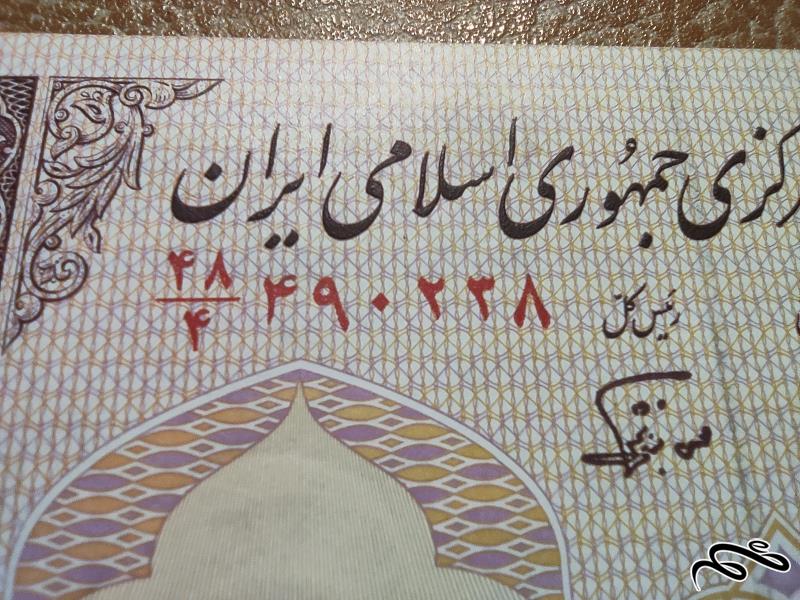 رکزی جمهوری اسلامی ایران
۴۸/۴ ۴۹۰۲۳۸
رئیس کل